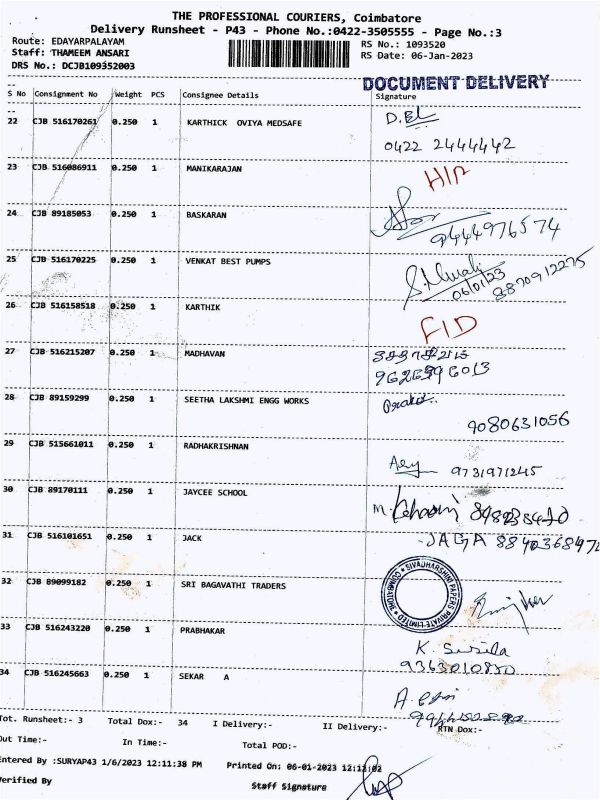 THE PROFESSIONAL COURIERS, Coimbatore
Delivery Runsheet - P43 - Phone No.:0422-3505555 - Page No.:3
Route: EDAYARPALAYAM RS No.: 1093520
Staff: THAMEEM ANSARI RS Date: 06-Jan-2023
DRS No.: DCJB109352003
DOCUMENT DELIVERY
S No Consignment No Weight PCS Consignee Details Signature
22 CJB 516170261 0.250 1 KARTHICK OVIYA MEDSAFE
0422 2444442
23 CJB 516086911 0.250 1 MANIKARAJAN
24 CJB 89185053 0.250 1 BASKARAN
9444976574
25 CJB 516170225 0.250 1 VENKAT BEST PUMPS
06/01/23 8870912275
26 CJB 516158518 0.250 1 KARTHIK
FID
27 CJB 516215207 0.250 1 MADHAVAN
28 CJB 89159299 0.250 1 SEETHA LAKSHMI ENGG WORKS
9080631056
29 CJB 515661011 0.250 1 RADHAKRISHNAN
9731971245
30 CJB 89170111 0.250 1 JAYCEE SCHOOL
31 CJB 516101651 0.250 1 JACK
JAGA
32 CJB 89099182 0.250 1 SRI BAGAVATHI TRADERS
SIVADHARSHINI PAPERS PRIVATE LIMITED * COIMBATORE *
33 CJB 516243220 0.250 1 PRABHAKAR
K. Susila
9363010850
34 CJB 516245663 0.250 1 SEKAR A
Tot. Runsheet:- 3 Total Dox:- 34 I Delivery:- II Delivery:- RTN Dox:-
Out Time:- In Time:- Total POD:-
Entered By :SURYAP43 1/6/2023 12:11:38 PM Printed On: 06-01-2023 12:12:02
Verified By Staff Signature